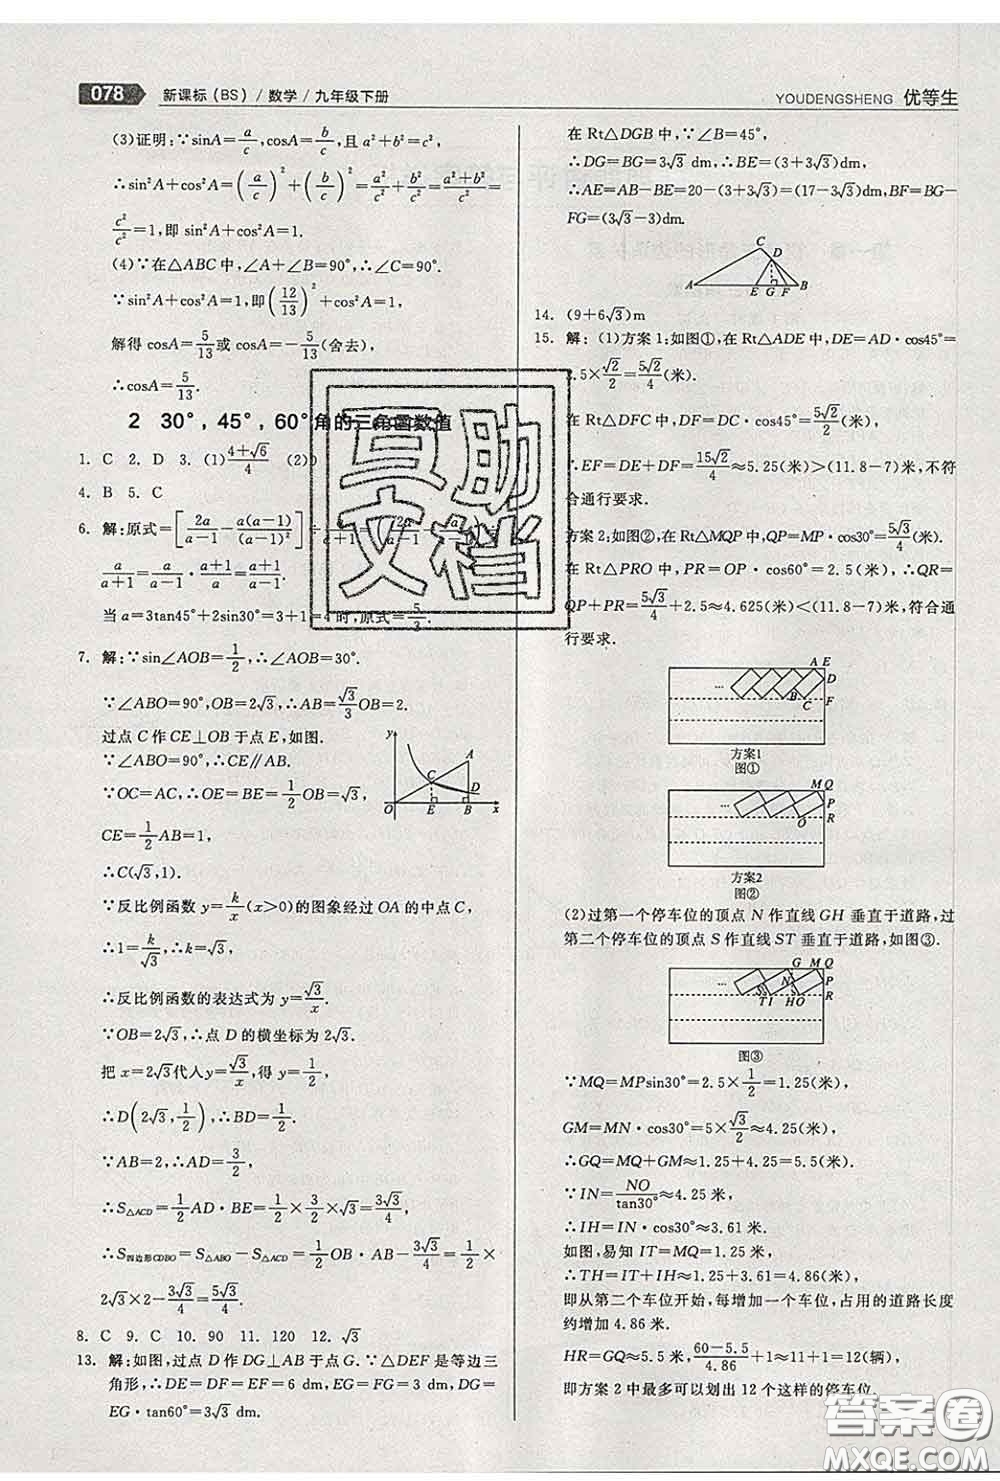 078 新课标(BS)/数学/九年级下册
YOUDENGSHENG 优等生
(3)证明:∵sinA=a/c,cosA=b/c,且a²+b²=c²,
∴sin²A+cos²A=(a/c)²+(b/c)²=a²/c²+b²/c²=(a²+b²)/c²=
c²/c²=1,即 sin²A+cos²A=1.
(4)∵在△ABC中,∠A+∠B=90°,∴∠C=90°.
∵sin²A+cos²A=1,即(12/13)²+cos²A=1,
解得 cosA=5/13或 cosA=-5/13(舍去),
∴cosA=5/13.
2 30°,45°,60°角的三角函数值
1. C 2. D 3. (1)(4+√6)/4 (2)0
4. B 5. C
6. 解:原式=[2a/(a-1)-a(a-1)/(a-1)²]
a/(a+1)=a/(a-1)·(a+1)/a=(a+1)/(a-1).
当 a=3tan45°+2sin30°=3+1=4时,原式=5/3.
7. 解:∵sin∠AOB=1/2,∴∠AOB=30°.
∵∠ABO=90°,OB=2√3,∴AB=√3/3OB=2.
过点C作CE⊥OB于点E,如图.
∵∠ABO=90°,∴CE∥AB.
∵OC=AC,∴OE=BE=1/2OB=√3,
CE=1/2AB=1,
∴C(√3,1).
∵反比例函数y=k/x(x>0)的图象经过OA的中点C,
∴1=k/√3,∴k=√3,
∴反比例函数的表达式为y=√3/x.
∵OB=2√3,∴点D的横坐标为2√3.
把x=2√3代入y=√3/x,得y=1/2,
∴D(2√3,1/2),∴BD=1/2.
∵AB=2,∴AD=3/2,
∴S△ACD=1/2AD·BE=1/2×3/2×√3=3√3/4,
∴S四边形CDBO=S△ABO-S△ACD=1/2OB·AB-3√3/4=1/2×
2√3×2-3√3/4=5√3/4.
y
A
C
D
O E B x
8. C 9. C 10. 90 11. 120 12. √3
13. 解:如图,过点D作DG⊥AB于点G.∵△DEF是等边三
角形,∴DE=DF=EF=6 dm,EG=FG=3 dm,DG=
EG·tan60°=3√3 dm.
在Rt△DGB中,∵∠B=45°,
∴DG=BG=3√3 dm,∴BE=(3+3√3)dm,
∴AE=AB-BE=20-(3+3√3)=(17-3√3)dm,BF=BG-
FG=(3√3-3)dm.
C
D
A E G F B
14. (9+6√3)m
15. 解:(1)方案1:如图①,在Rt△ADE中,DE=AD·cos45°=
2.5×√2/2=5√2/4(米).
在Rt△DFC中,DF=DC·cos45°=5√2/2(米),
∴EF=DE+DF=15√2/4≈5.25(米)>(11.8-7)米,不符
合通行要求.
方案2:如图②,在Rt△MQP中,QP=MP·cos30°=5√3/4(米).
在Rt△PRO中,PR=OP·cos60°=2.5(米),∴QR=
QP+PR=5√3/4+2.5≈4.625(米)<(11.8-7)米,符合通
行要求.
A E
… D
B C F
方案1
图①
M Q
… P
O R
方案2
图②
(2)过第一个停车位的顶点N作直线GH垂直于道路,过
第二个停车位的顶点S作直线ST垂直于道路,如图③.
G M Q
… N P
S
T I H O R
图③
∵MQ=MPsin30°=2.5×1/2=1.25(米),
GM=MN·cos30°=5×√3/2≈4.25(米),
∴GQ=MQ+GM≈1.25+4.25=5.5(米).
∵IN=NO/tan30°≈4.25(米),
∴IH=IN·cos30°≈3.61米.
如图,易知 IT=MQ=1.25(米),
∴TH=IT+IH≈1.25+3.61=4.86(米),
即从第二个车位开始,每增加一个车位,占用的道路长度
约增加4.86米.
HR=GQ≈5.5米,(60-5.5)/4.86+1≈11+1=12(辆),
即方案2中最多可以划出12个这样的停车位.
互助
文档
答案圈
MXQE.COM